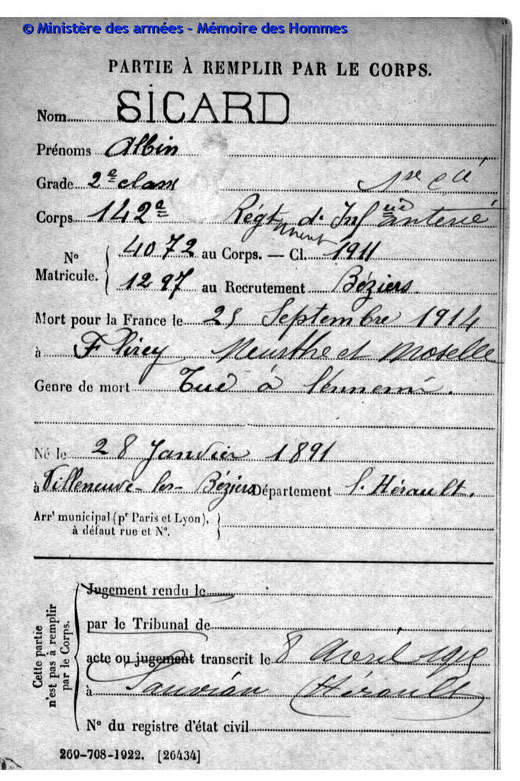 © Ministère des armées - Mémoire des Hommes
PARTIE À REMPLIR PAR LE CORPS.
Nom SICARD
Prénoms Albin
Grade 2e class 1re Cie
Corps 142e Régt d'Infanterie
4072 au Corps. — Cl. 1911
N° Matricule.
1297 au Recrutement Béziers.
Mort pour la France le 25 Septembre 1914
à Flirey Meurthe et Moselle
Genre de mort Tué à l'ennemi.
Né le 28 Janvier 1891
à Villeneuve les Béziers Département l'Hérault.
Arrt municipal (pr Paris et Lyon),
à défaut rue et N°.
Cette partie n'est pas à remplir par le Corps.
Jugement rendu le
par le Tribunal de
acte ou jugement transcrit le 8 Avril 1915
à Sauvian (Hérault)
N° du registre d'état civil
269-708-1922. [26434]